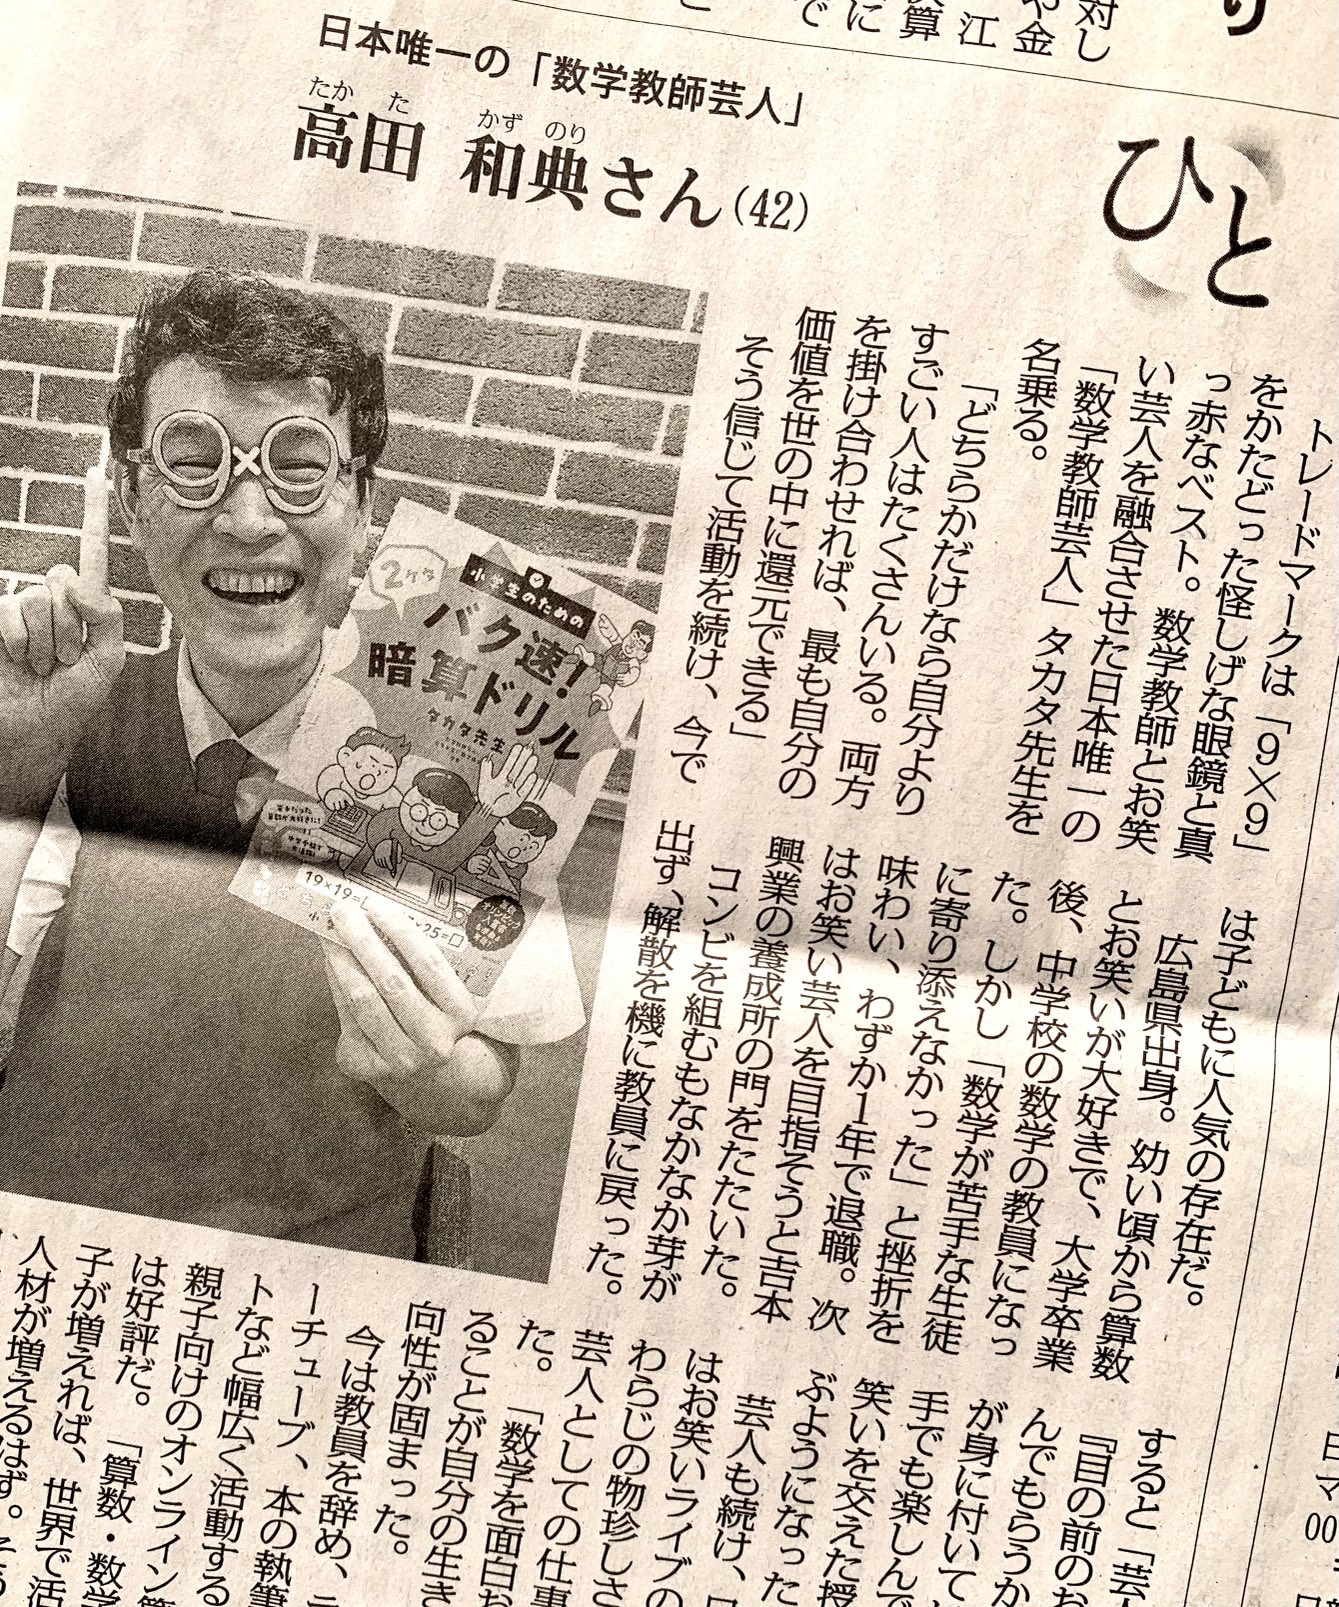 日本唯一の「数学教師芸人」
たか た かず のり
高田 和典さん(42)
ひと
トレードマークは「9×9」
をかたどった怪しげな眼鏡と真
っ赤なベスト。数学教師とお笑
い芸人を融合させた日本唯一の
「数学教師芸人」タカタ先生を
名乗る。
「どちらかだけなら自分より
すごい人はたくさんいる。両方
を掛け合わせれば、最も自分の
価値を世の中に還元できる」
そう信じて活動を続け、今で
は子どもに人気の存在だ。
広島県出身。幼い頃から算数
とお笑いが大好きで、大学卒業
後、中学校の数学の教員になっ
た。しかし「数学が苦手な生徒
に寄り添えなかった」と挫折を
味わい、わずか1年で退職。次
はお笑い芸人を目指そうと吉本
興業の養成所の門をたたいた。
コンビを組むもなかなか芽が
出ず、解散を機に教員に戻った。
すると「芸人
『目の前のお
んでもらうか
が身に付いて
手でも楽しんで
笑いを交えた授
ぶようになった
芸人も続け、
はお笑いライブの
わらじの物珍しさ
芸人としての仕事
た。「数学を面白お
ることが自分の生き
向性が固まった。
今は教員を辞め、
ーチューブ、本の執筆
トなど幅広く活動する
親子向けのオンライン
は好評だ。「算数・数学
子が増えれば、世界で活
人材が増えるはず。
2ケタ
小学生のための
バク速!
暗算ドリル
タカタ先生
19×19=
対し
や金
江
算
に
で
り
00